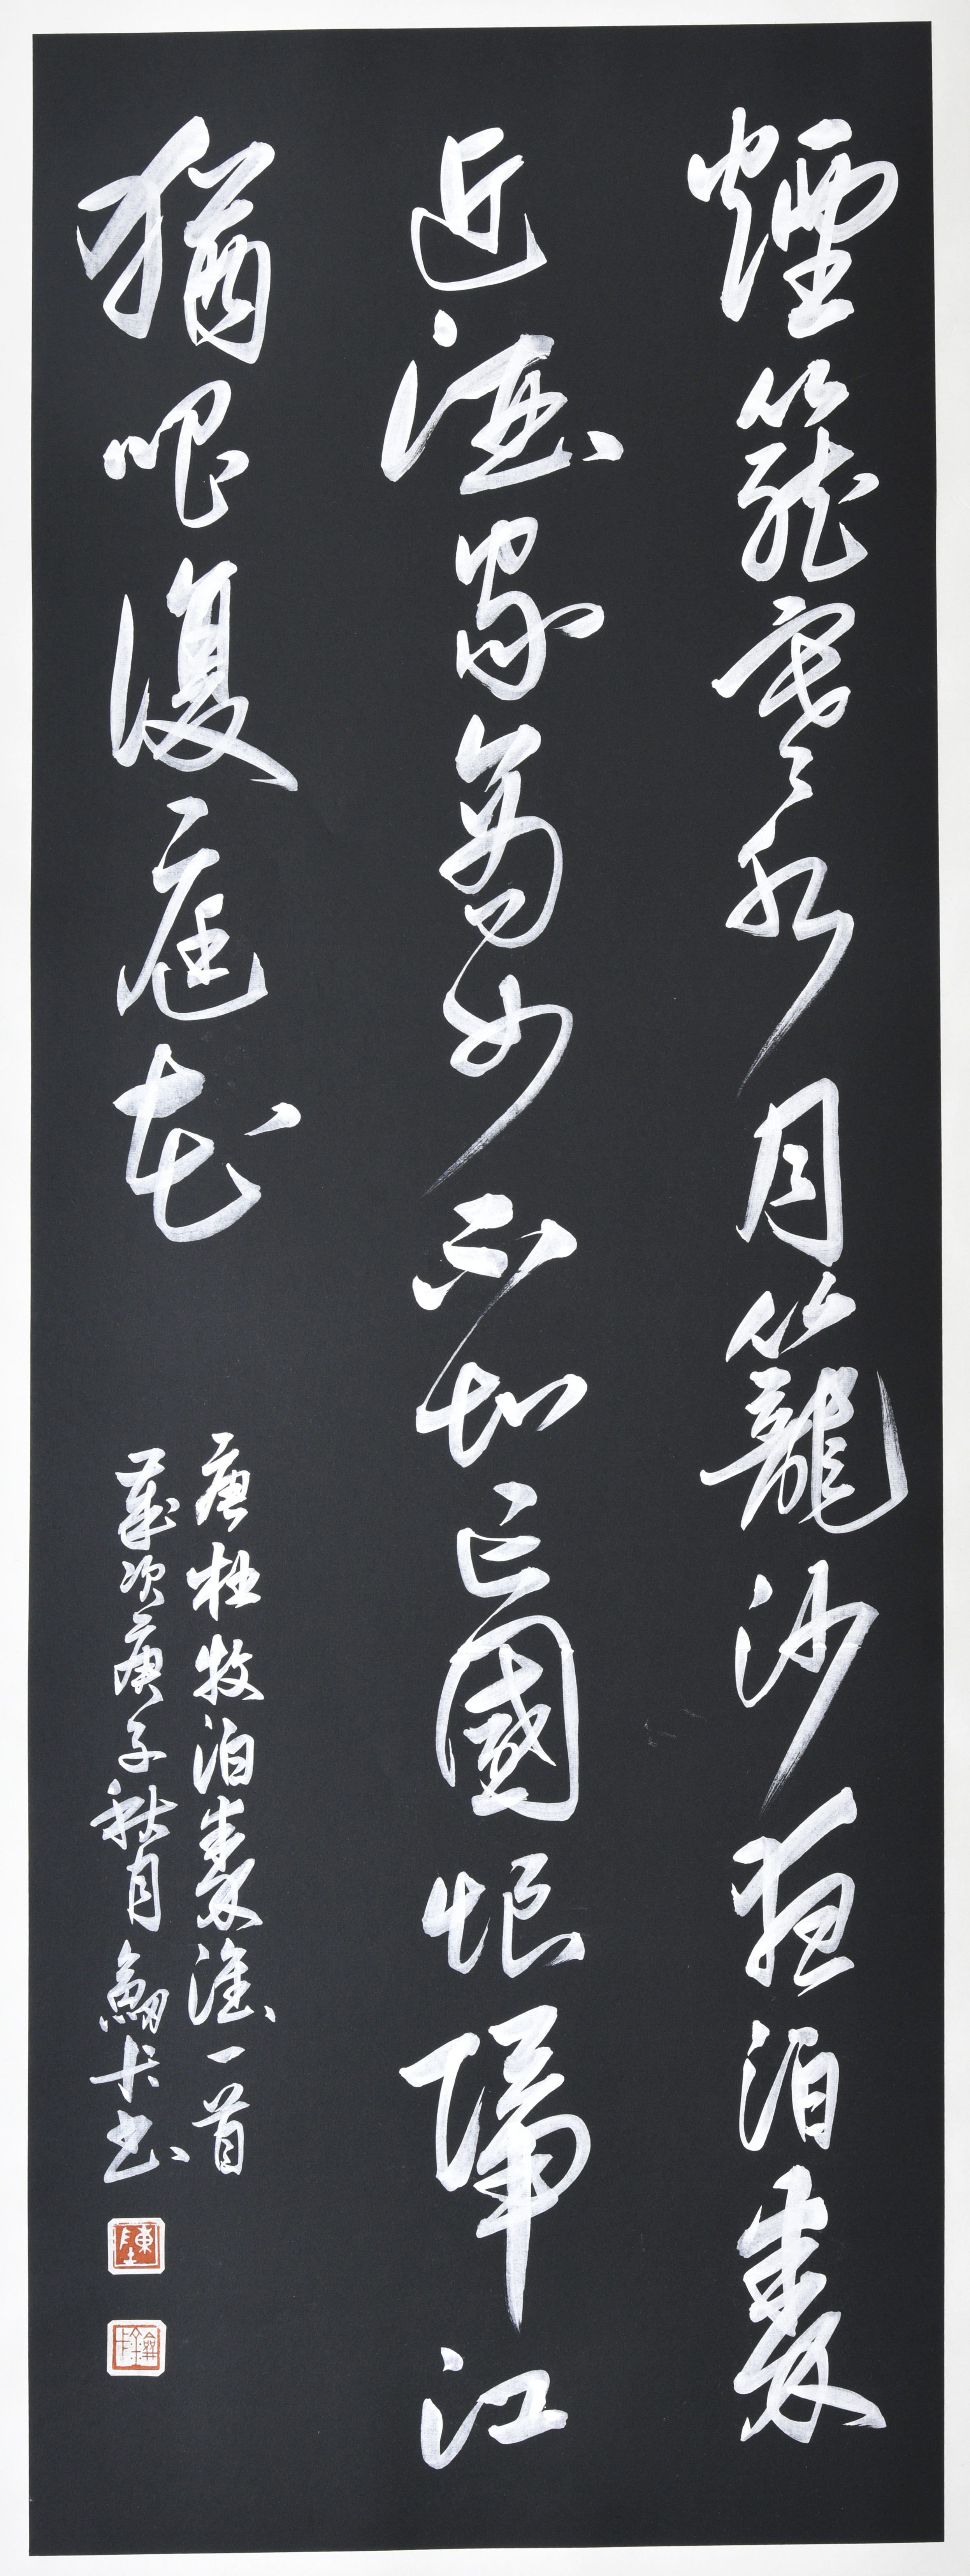 煙籠寒水月籠沙夜泊秦
近酒家商女不知亡國恨隔江
猶唱復庭花
唐杜牧泊秦淮一首
歲次庚子秋月卡书
陳